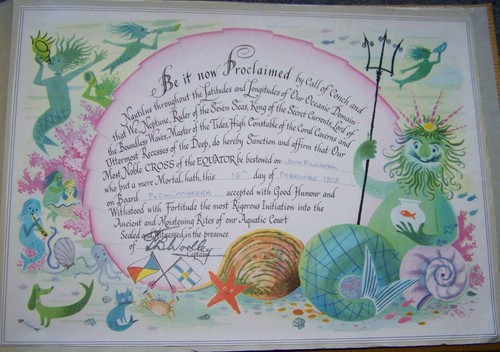 Be it now Proclaimed by Call of Conch and
Nautilus throughout the Latitudes and Longitudes of Our Oceanic Domain
that We, Neptune, Ruler of the Seven Seas, King of the Secret Currents, Lord of
the Boundless Waves, Master of the Tides, High Constable of the Coral Caverns and
Uttermost Recesses of the Deep, do hereby Sanction and affirm that Our
Most Noble CROSS of the EQUATOR be bestowed on John
who but a mere Mortal, hath, this 18th day of February
on Board accepted with Good Humour and
Withstood with Fortitude the most Rigorous Initiation into the
Ancient and Moistening Rites of our Aquatic Court
Sealed and Witnessed in the presence
of
Captain